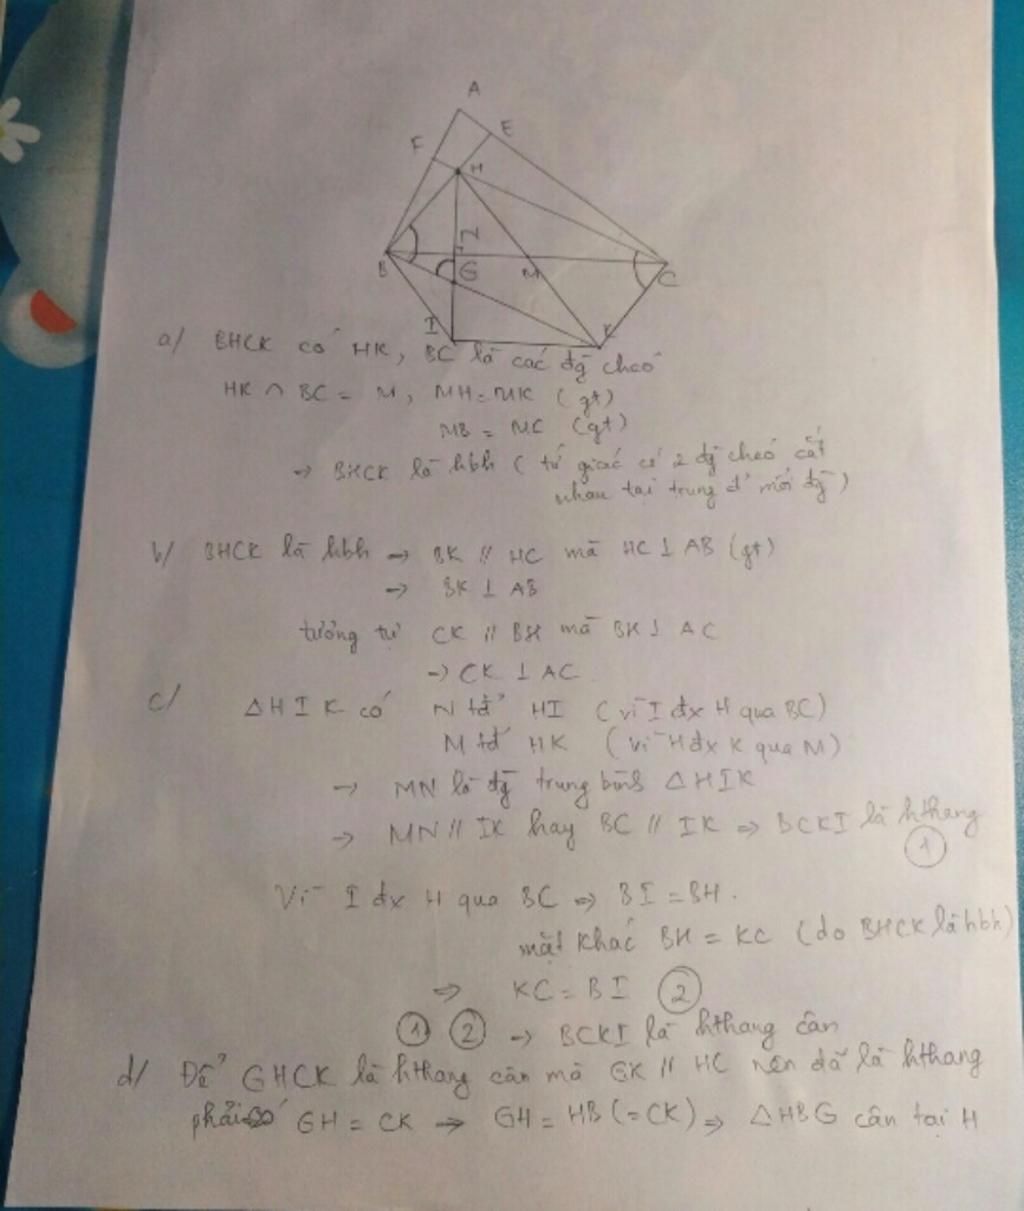 A
F
E
H
N
B
G
M
C
I
K
a/ BHCK có HK, BC là các đg chéo
HK ∩ BC = M, MH = MK (gt)
MB = MC (gt)
→ BHCK là hbh (tứ giác có 2 đg chéo cắt
nhau tại trung đ' mỗi đg)
b/ BHCK là hbh → BK // HC mà HC ⊥ AB (gt)
→ BK ⊥ AB
tương tự CK // BH mà BH ⊥ AC
→ CK ⊥ AC
c/ △HIK có N tđ' HI (vì I đx H qua BC)
M tđ' HK (vì H đx K qua M)
→ MN là đg trung bình △HIK
→ MN // IK hay BC // IK ⇒ BCKI là hthang
①
Vì I đx H qua BC ⇒ BI = BH.
mặt khác BH = KC (do BHCK là hbh)
⇒ KC = BI ②
① ② → BCKI là hthang cân
d/ Để GHCK là hthang cân mà GK // HC nên đã là hthang
phải có GH = CK → GH = HB (=CK) ⇒ △HBG cân tại H